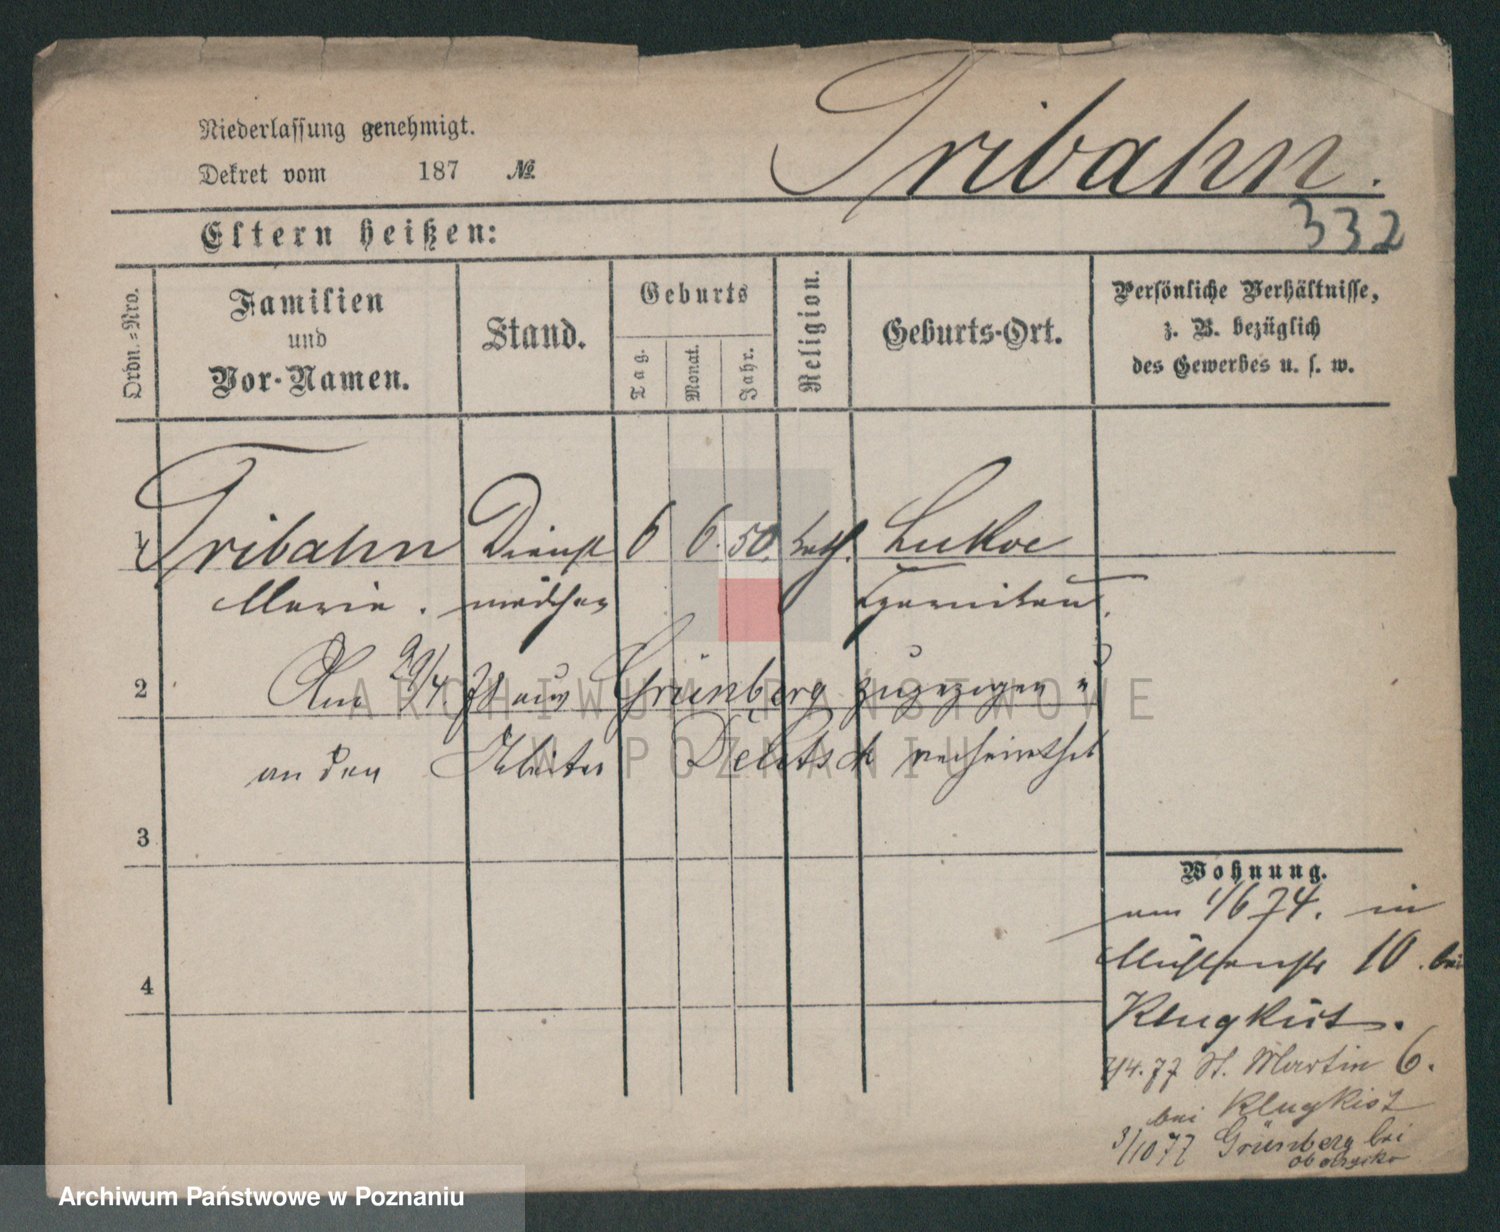 Niederlassung genehmigt.
Dekret vom 187 №
Tribahn.
332
Eltern heißen:
Ordn.-Nro.
Familien
und
Vor-Namen.
Stand.
Geburts
Tag.
Monat.
Jahr.
Religion.
Geburts-Ort.
Persönliche Verhältnisse,
z. B. bezüglich
des Gewerbes u. s. w.
1 Tribahn Dienst 6 6. 50. kath. Lukoe
Marie. mädchen Czarnikau.
2 Am 29/4. 78 aus Grünberg zugezogen u
an den Arbeiter verheirathet
3
4
Wohnung.
am 1/6 74. in
Mühlenstr 10. bei
Klugkist.
2/4. 77 St. Martin 6.
bei Klugkist
3/10 77 Grünberg bei
Obersitzko
ARCHIWUM PAŃSTWOWE
W POZNANIU
Archiwum Państwowe w Poznaniu